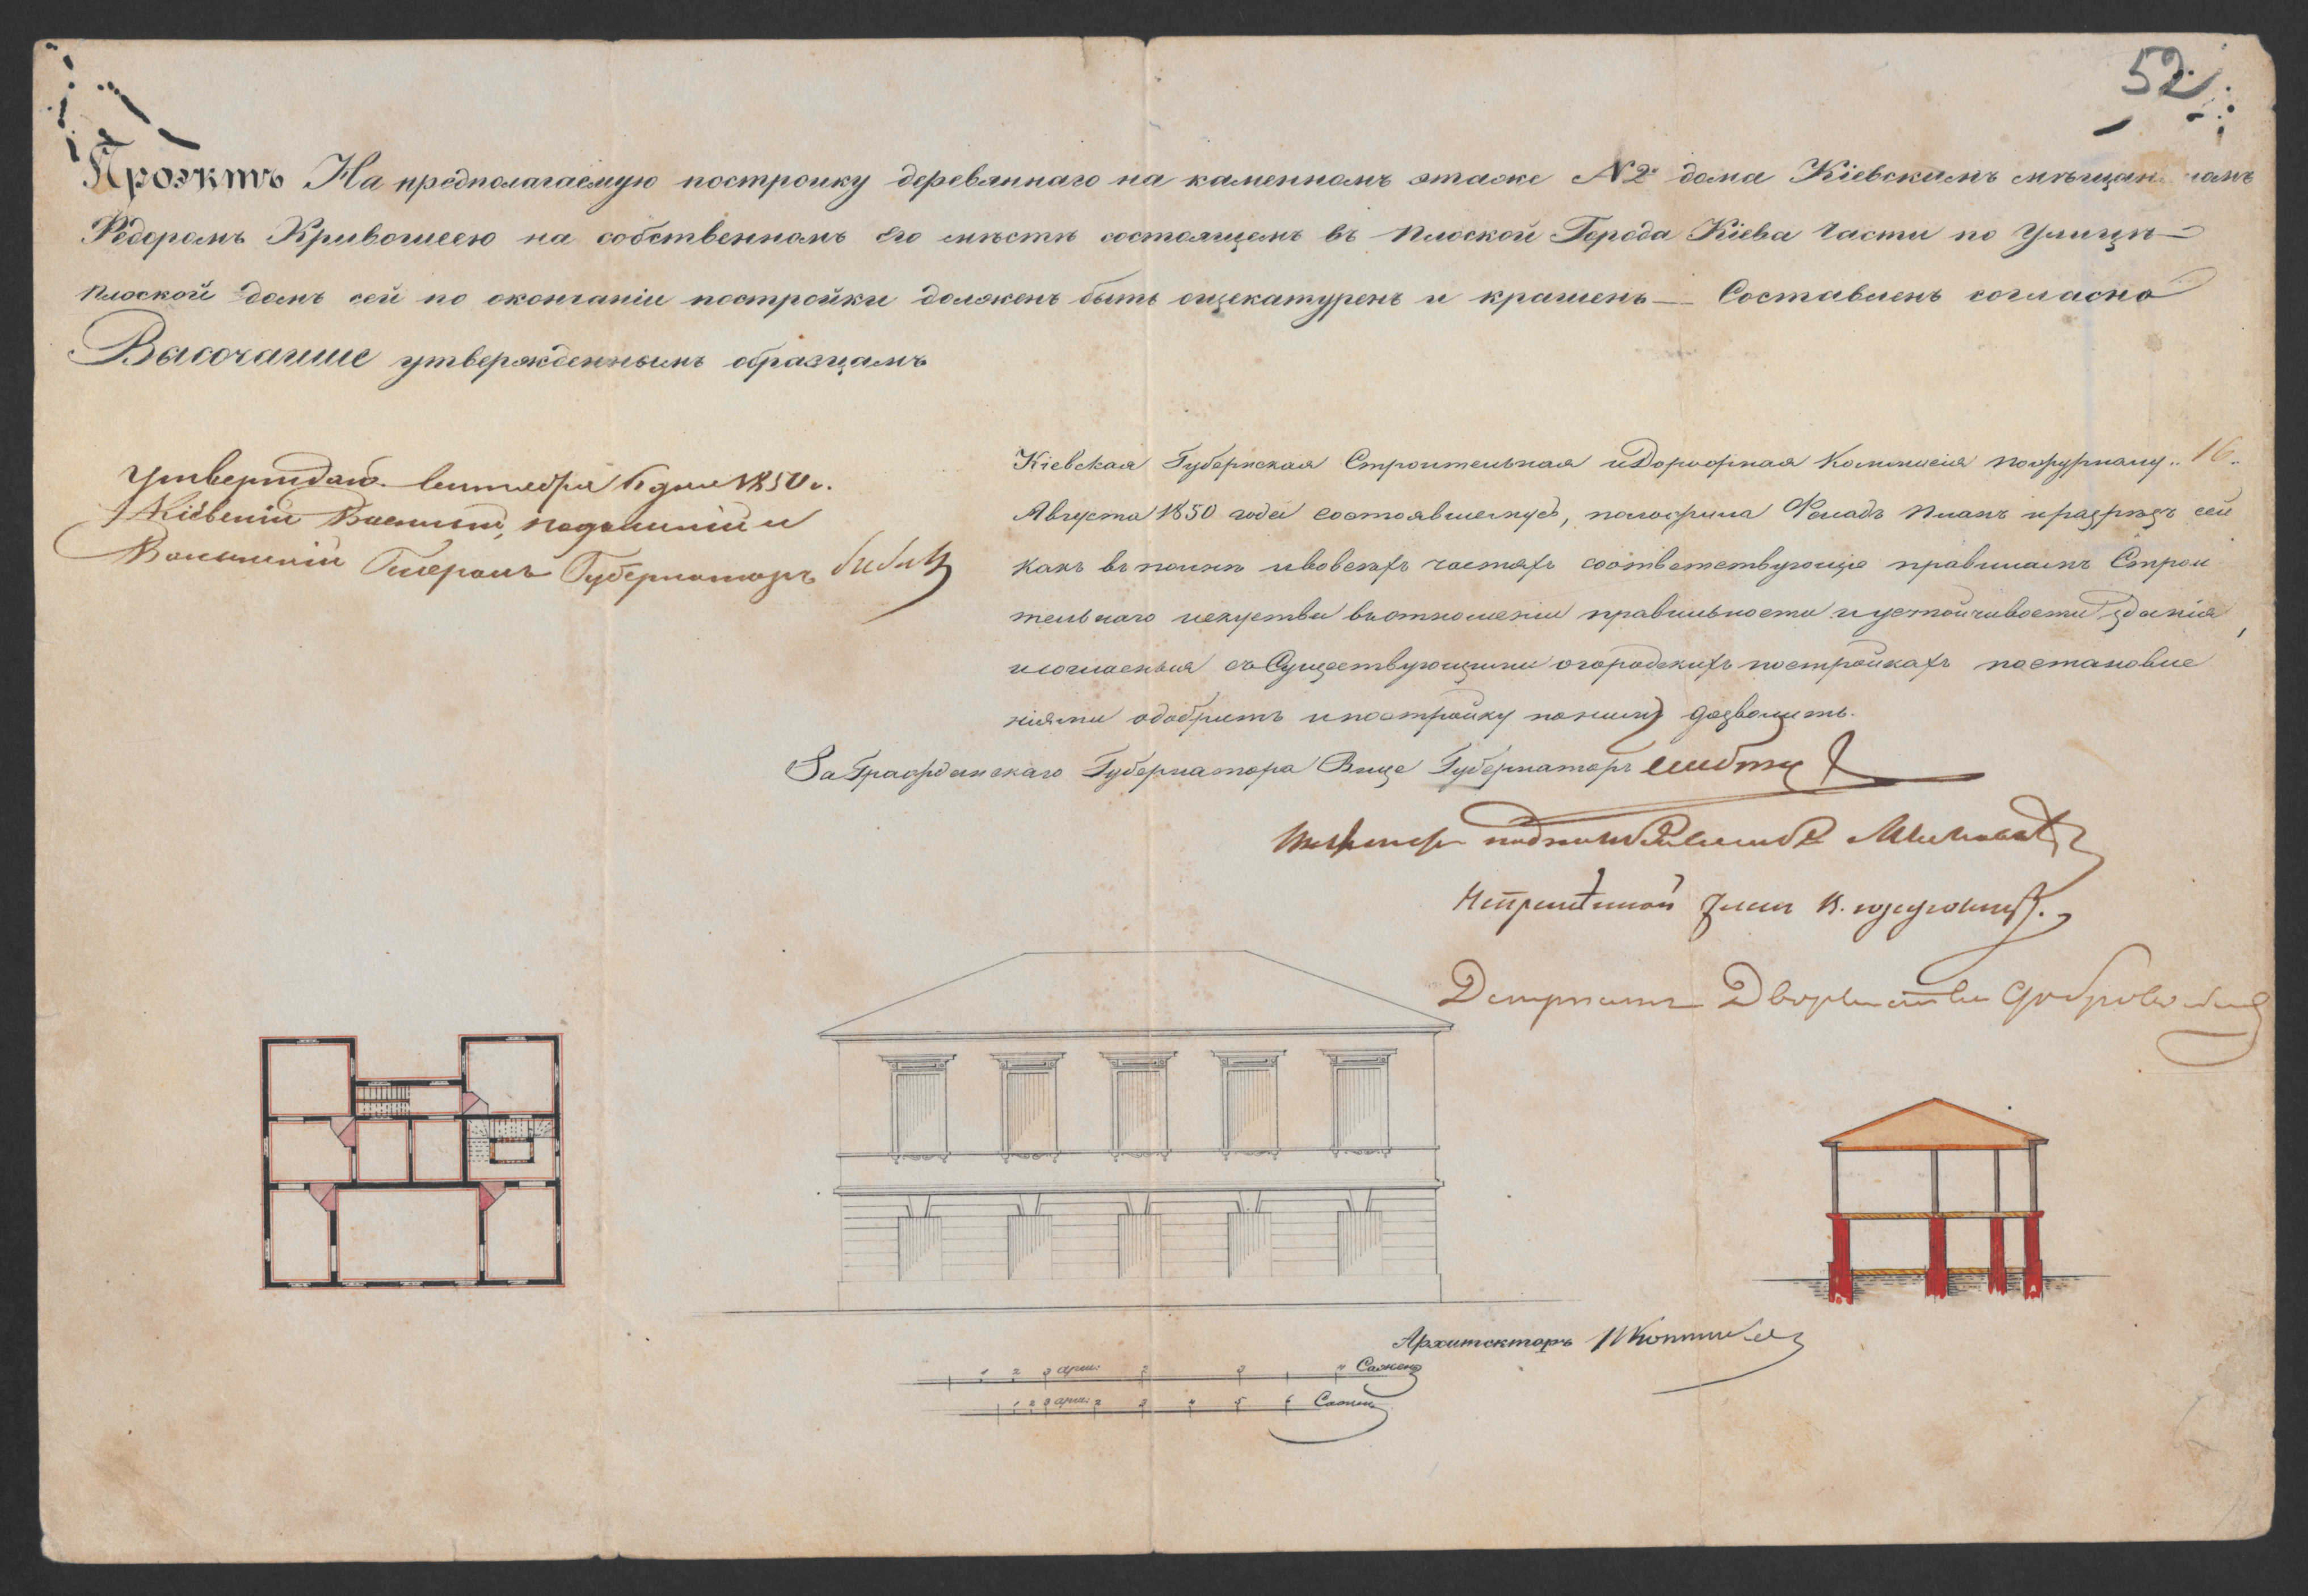 52
Проэктъ На предполагаемую постройку деревяннаго на каменномъ этаже N 2й дома Кіевскимъ мѣщан омъ
Федоромъ Кривошеею на собственномъ его мѣстѣ состоящемъ въ Плоской Города Кіева Части по Улицѣ
Плоской домъ сей по окончаніи постройки долженъ быть ощекатуренъ и крашенъ — Составленъ согласно
Высочаише утвержденнымъ образцамъ
Утверждаю. Сентября дня 1850 г.
Кіевскій Военный, Подольскій и
Волынскій Генералъ Губернаторъ Бибиковъ
Кіевская Губернская Строительная и Дорожная Коммисія по журналу „16„
Августа 1850 года состоявшемуся, положила Фасадъ Планъ и разрѣзъ сей
какъ въ полнѣ и вовсехъ частяхъ соответствующіе правиламъ Строи
тельнаго искуства въ отношеніи правильности и устойчивости зданія,
и согласныя съ Существующими о городскихъ постройкахъ постановле
ніями одобрить и постройку по нимъ дозволить.
За Гражданскаго Губернатора Вице Губернаторъ
Инженеръ
Непременной Членъ
Депутатъ Дворянства
Архитекторъ
1 2 3 арш: 2 3 4 Сажень
1 2 3 арш: 2 3 4 5 6 Сажень